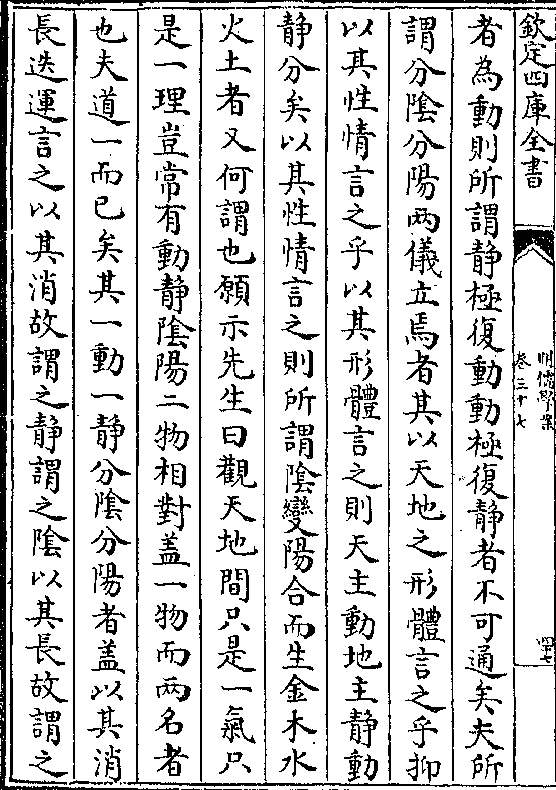 欽定四庫全書
明儒學案
卷三十七
四十七
者為動則所謂静極復動動極復静者不可通矣夫所
謂分陰分陽兩儀立焉者其以天地之形體言之乎抑
以其性情言之乎以其形體言之則天主動地主静動
静分矣以其性情言之則所謂陰變陽合而生金木水
火土者又何謂也願示先生曰觀天地間只是一氣只
是一理豈常有動静陰陽二物相對盖一物而兩名者
也夫道一而已矣其一動一静分陰分陽者盖以其消
長迭運言之以其消故謂之静謂之陰以其長故謂之